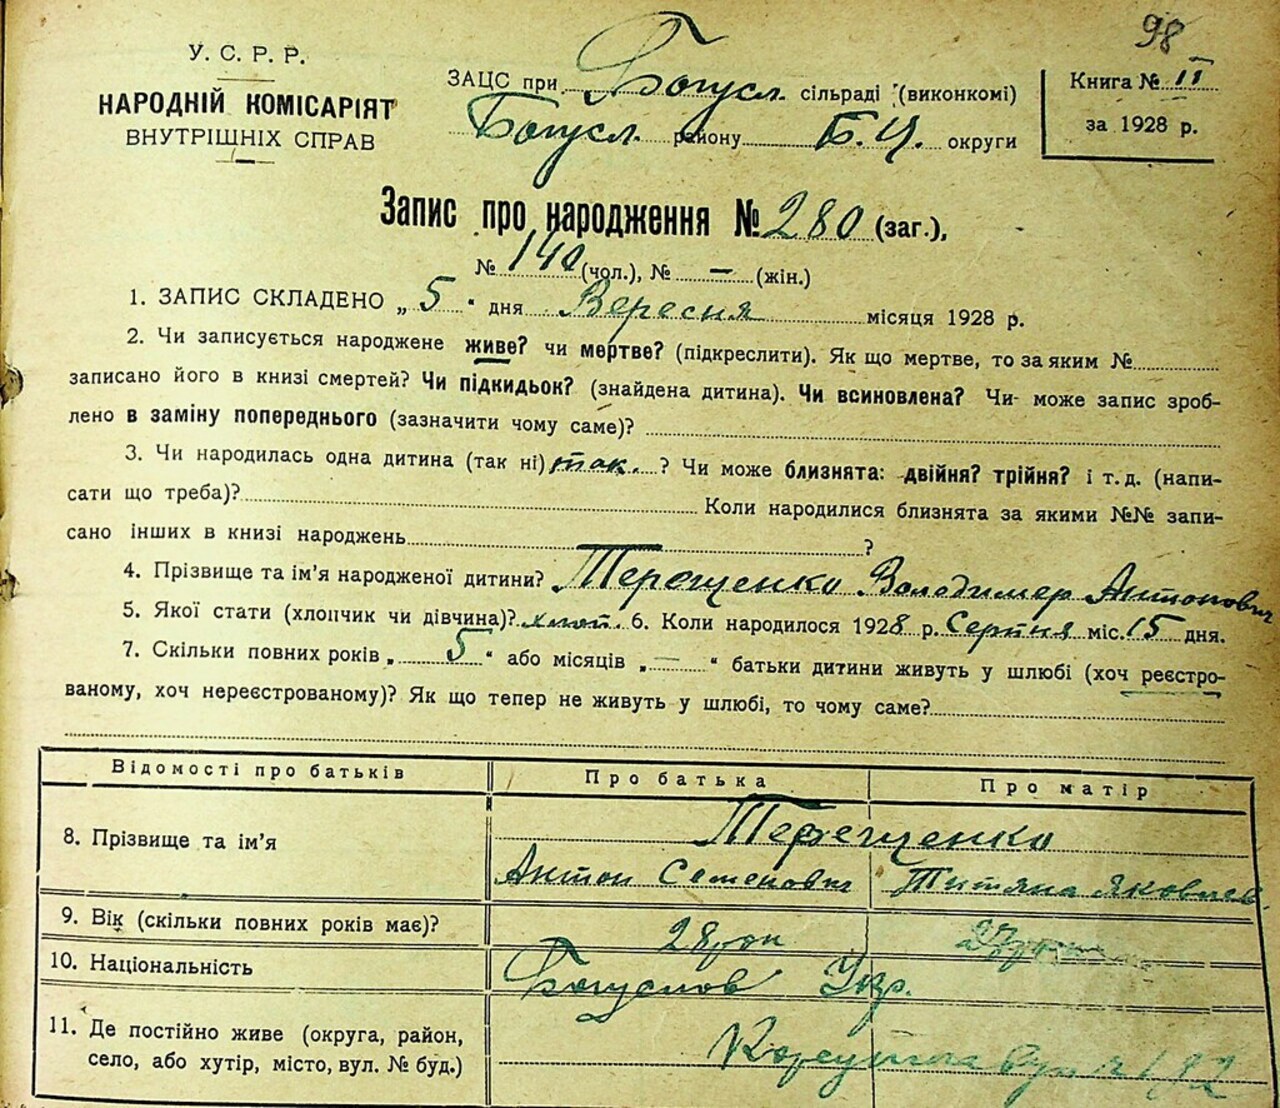 98
У. С. Р. Р.
НАРОДНІЙ КОМІСАРІЯТ
ВНУТРІШНІХ СПРАВ
ЗАЦС при Богусл. сільраді (виконкомі)
Богусл. району Б.Ц. округи
Книга № II
за 1928 р.
Запис про народження № 280 (заг.),
№ 140 (чол.), № — (жін.)
1. ЗАПИС СКЛАДЕНО „ 5 " дня Вересня місяця 1928 р.
2. Чи записується народжене живе? чи мертве? (підкреслити). Як що мертве, то за яким №
записано його в книзі смертей? Чи підкидьок? (знайдена дитина). Чи всиновлена? Чи може запис зроб-
лено в заміну попереднього (зазначити чому саме)?
3. Чи народилась одна дитина (так ні) так. ? Чи може близнята: двійня? трійня? і т. д. (напи-
сати що треба)? Коли народилися близнята за якими №№ запи-
сано інших в книзі народжень ?
4. Прізвище та ім'я народженої дитини? Терещенко Володимер Антонович
5. Якої стати (хлопчик чи дівчина)? хлоп. 6. Коли народилося 1928 р. Серпня міс. 15 дня.
7. Скільки повних років „ 5 " або місяців „ — " батьки дитини живуть у шлюбі (хоч реєстро-
ваному, хоч нереєстрованому)? Як що тепер не живуть у шлюбі, то чому саме?
Відомості про батьків Про батька Про матір
8. Прізвище та ім'я Терещенко
Антон Семенович Титяна Яковлев.
9. Вік (скільки повних років має)? 28 рок
10. Національність Укр.
11. Де постійно живе (округа, район,
село, або хутір, місто, вул. № буд.)